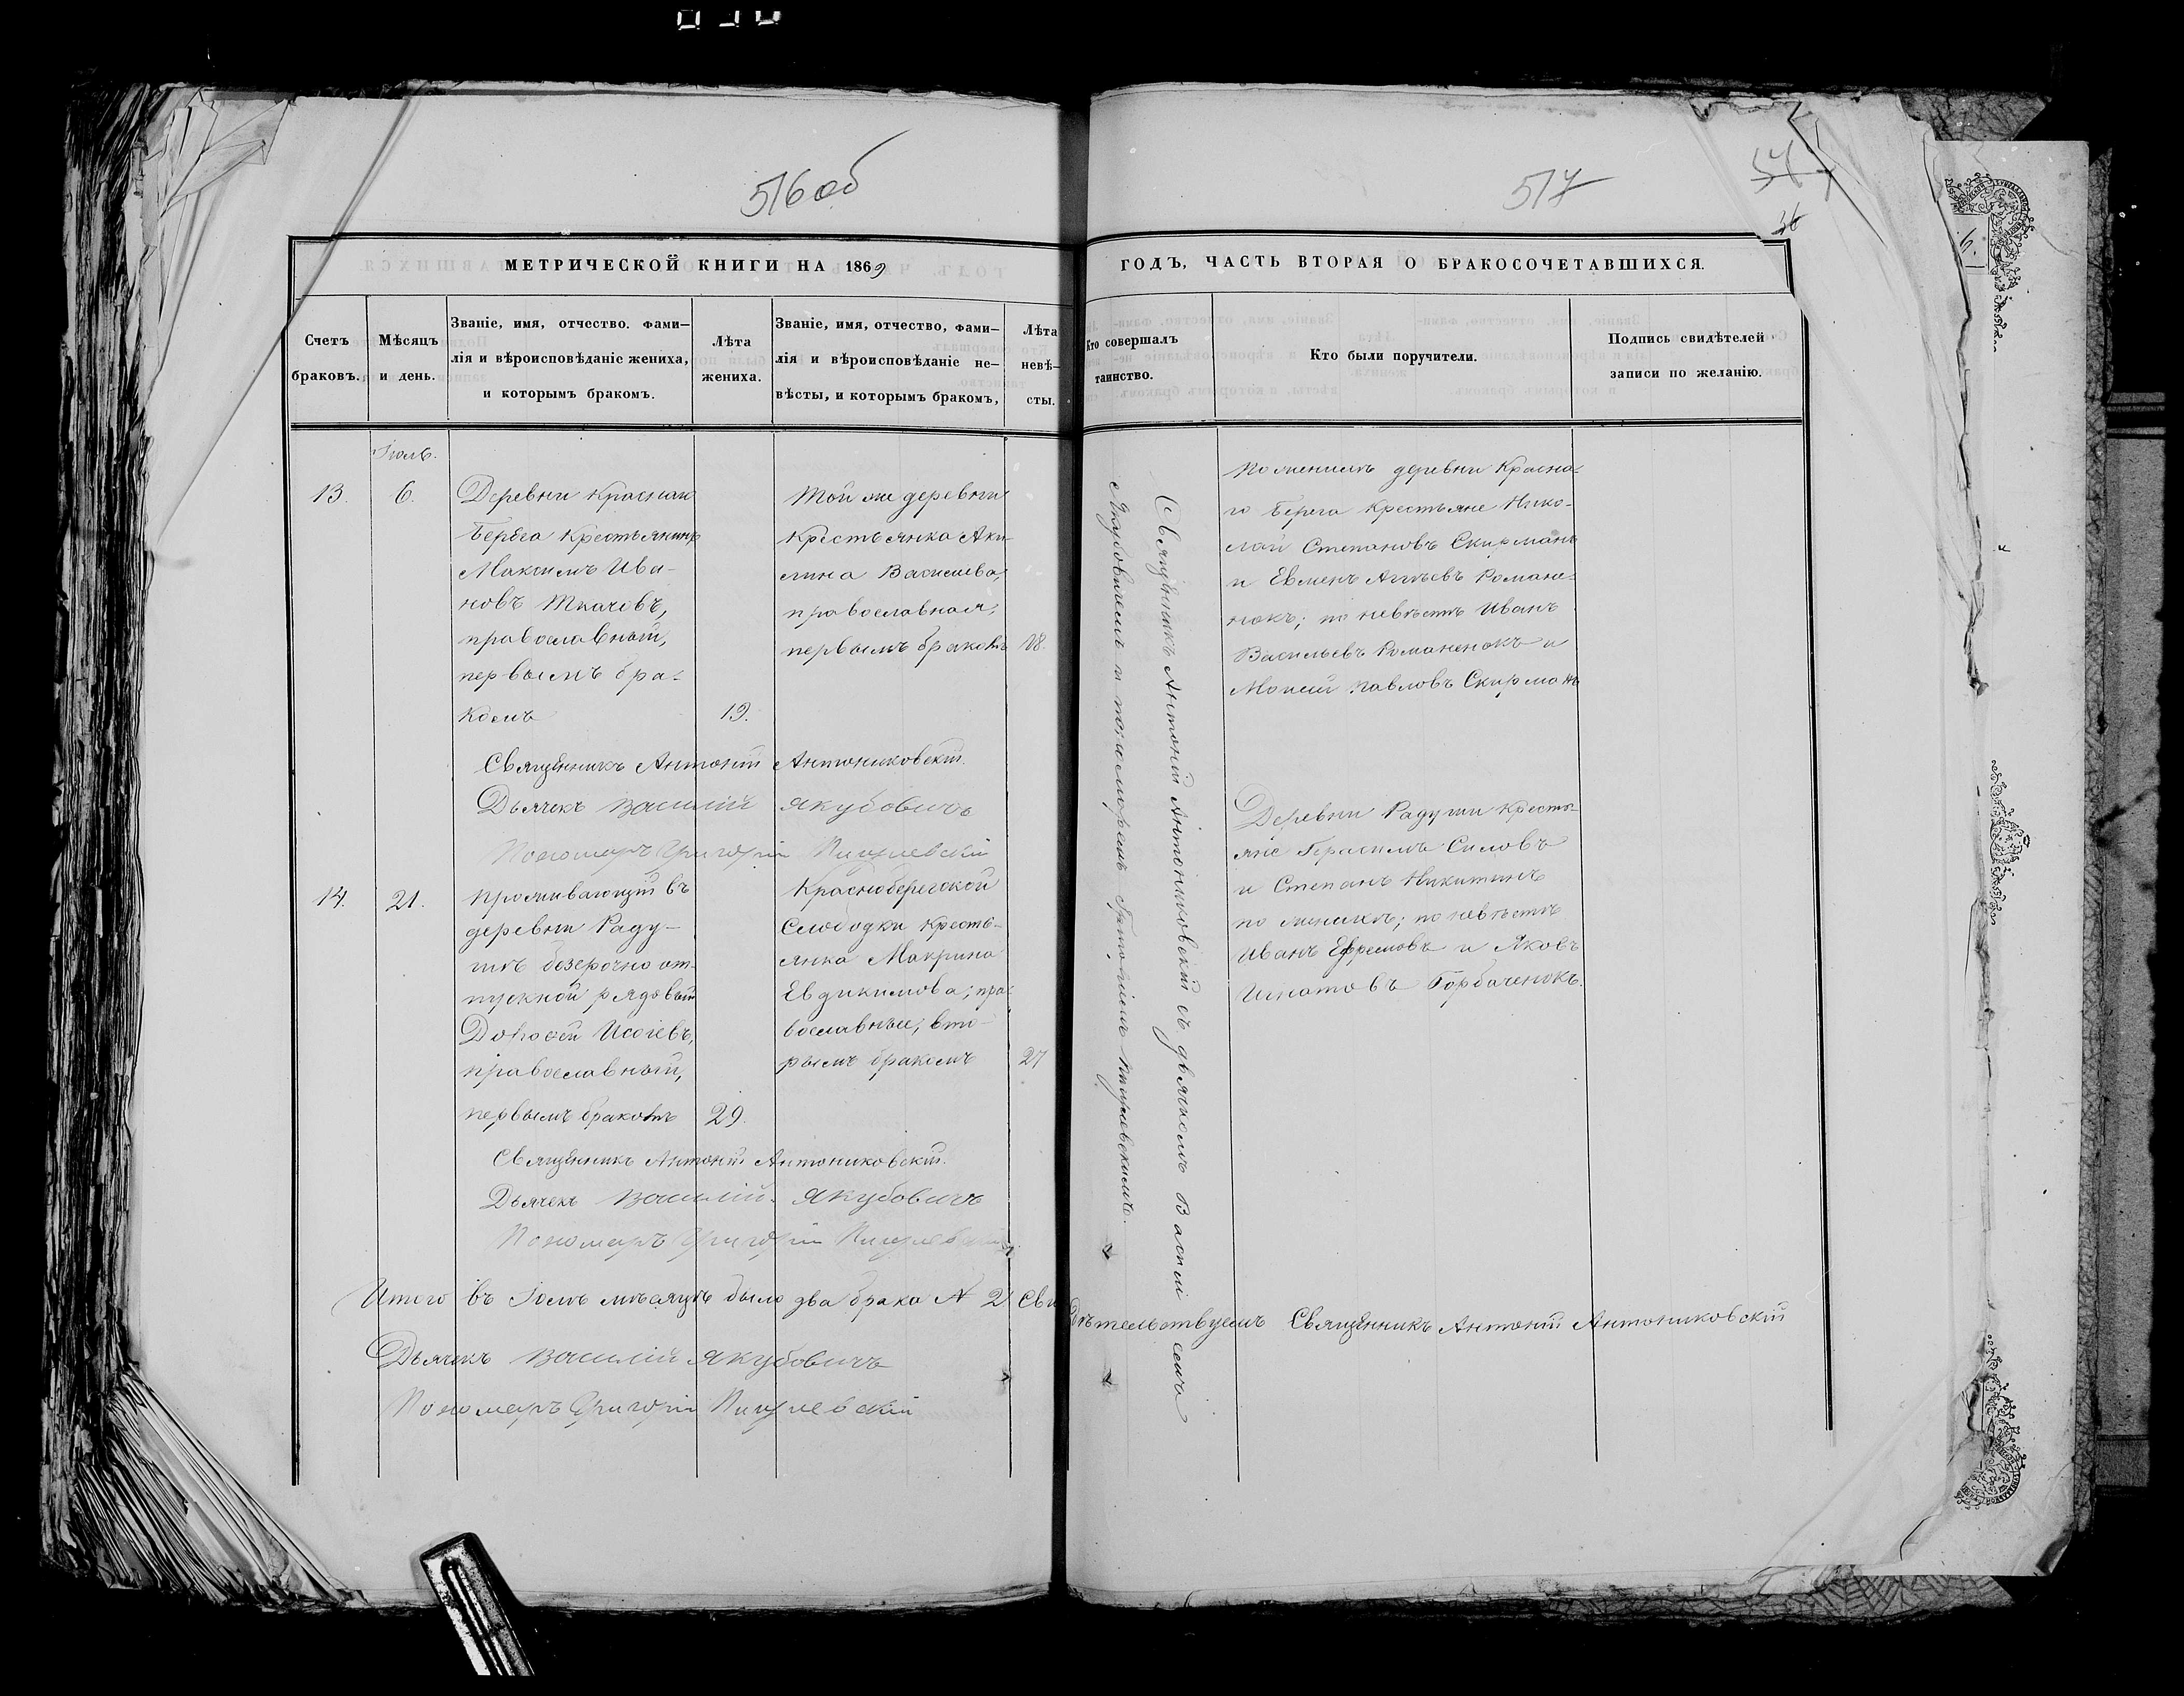 516 об
517
МЕТРИЧЕСКОЙ КНИГИ НА 1869
ГОДЪ, ЧАСТЬ ВТОРАЯ О БРАКОСОЧЕТАВШИХСЯ.
Счетъ
браковъ.
Мѣсяцъ
и день.
Званіе, имя, отчество. фами—
лія и вѣроисповѣданіе жениха,
и которымъ бракомъ.
Лѣта
жениха.
Званіе, имя, отчество, фами—
лія и вѣроисповѣданіе не—
вѣсты, и которымъ бракомъ,
Лѣта
невѣ—
сты.
Кто совершалъ
таинство.
Кто были поручители.
Подпись свидѣтелей
записи по желанію.
Іюль.
13.
6.
Деревни Краснаго
Берега Крестьянинъ
Максимъ Ива-
новъ Ткачовъ,
православный,
первымъ бра-
комъ
19.
Той же деревни
Крестьянка Аки-
лина Васильева,
православная,
первымъ бракомъ
18.
По женихѣ деревни Красна-
го Берега Крестьяне Нико-
лай Степановъ Скирманъ
и Евменъ Романе-
нокъ; по невѣстѣ Иванъ
Васильевъ Романенокъ и
Моисей Павловъ Скирманъ
Священникъ Антоній Антониковскій.
Дьячекъ Василій Якубовичъ
Пономарь Григорій
14.
21.
Проживающій въ
деревни Раду-
шѣ безсрочно от-
пускной рядовый
Дороѳей
православный,
первымъ бракомъ
29.
Красноберегской
Слободки Кресть-
янка Макрина
Евдикимова; пра-
вославные, вто-
рымъ бракомъ
27
Деревни Радуши Кресть-
яне Герасимъ Силовъ
и Степанъ Никитинъ
по женихѣ; по невѣстѣ
Иванъ Ефремовъ и Яковъ
Игнатовъ Горбаченокъ.
Священникъ Антоній Антониковскій.
Дьячекъ Василій Якубовичъ
Пономарь Григорій
Священникъ Антоній Антониковскій съ дьячкомъ Василіемъ
Якубовичемъ и пономоремъ Григоріемъ
Итого въ Іюлѣ мѣсяцѣ было два брака № 2 Сви
дѣтельствуемъ Священникъ Антоній Антониковскій
Дьячекъ Василій Якубовичъ
Пономарь Григорій